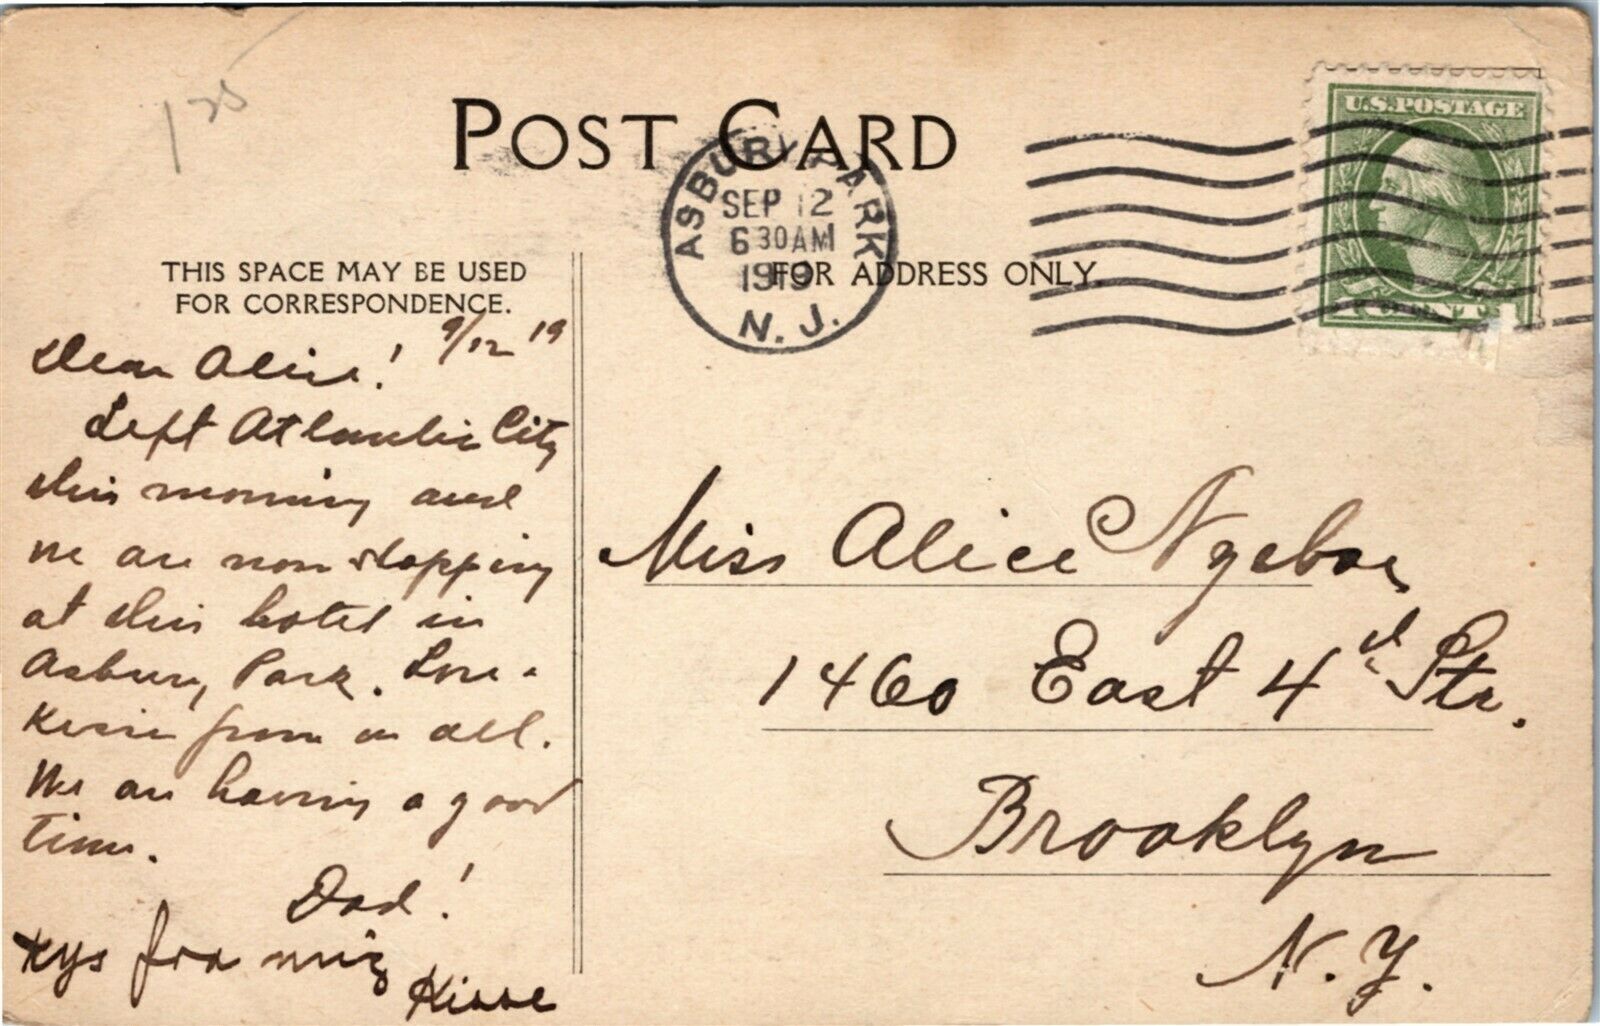 125
POST CARD
ASBURY PARK
SEP 12
6 30 AM
1919
N. J.
U.S. POSTAGE
THIS SPACE MAY BE USED
FOR CORRESPONDENCE.
FOR ADDRESS ONLY.
9/12 19
Dear Alice!
Left Atlantic City
this morning and
we are now stopping
at this hotel in
Asbury Park. Love &
Kisses from us all.
We are having a good
time.
Dad!
Kys fra mig
Kisse
Miss Alice
1460 East 4th Str.
Brooklyn
N. Y.